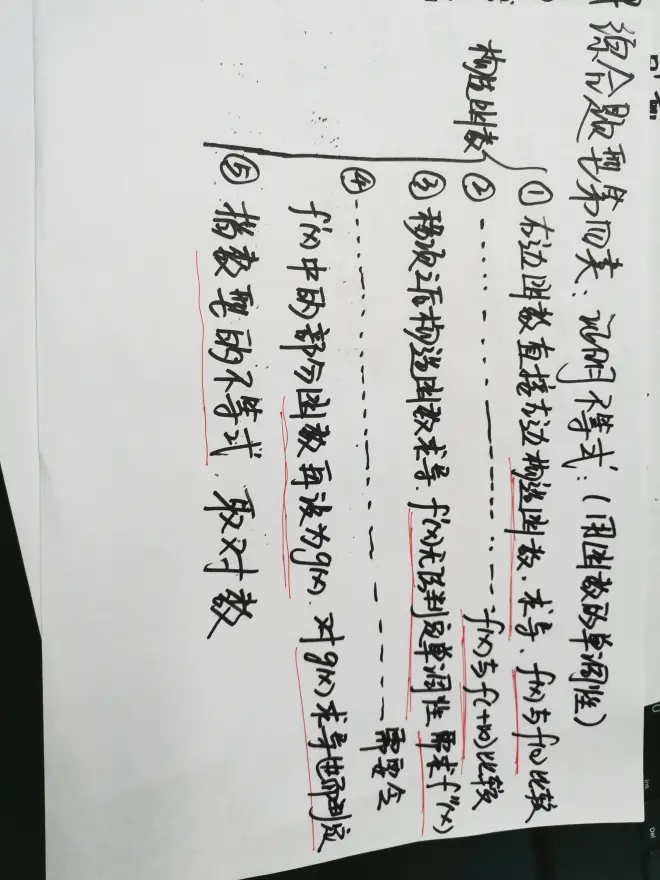 综合题型第四类：证明不等式：(用函数的单调性)
构造函数
① 右边函数直接右边构造函数，求导，f(x)与f(0)比较
② ------------ f(x)与f(+∞)比较
③ 移项之后构造函数求导，f'(x)无法判定单调性 需求f''(x)
④ ------------ 需要令
f'(x)中的部分函数再设为g(x)，对g(x)求导进而判定
⑤ 指数型的不等式，取对数
Ins
Del